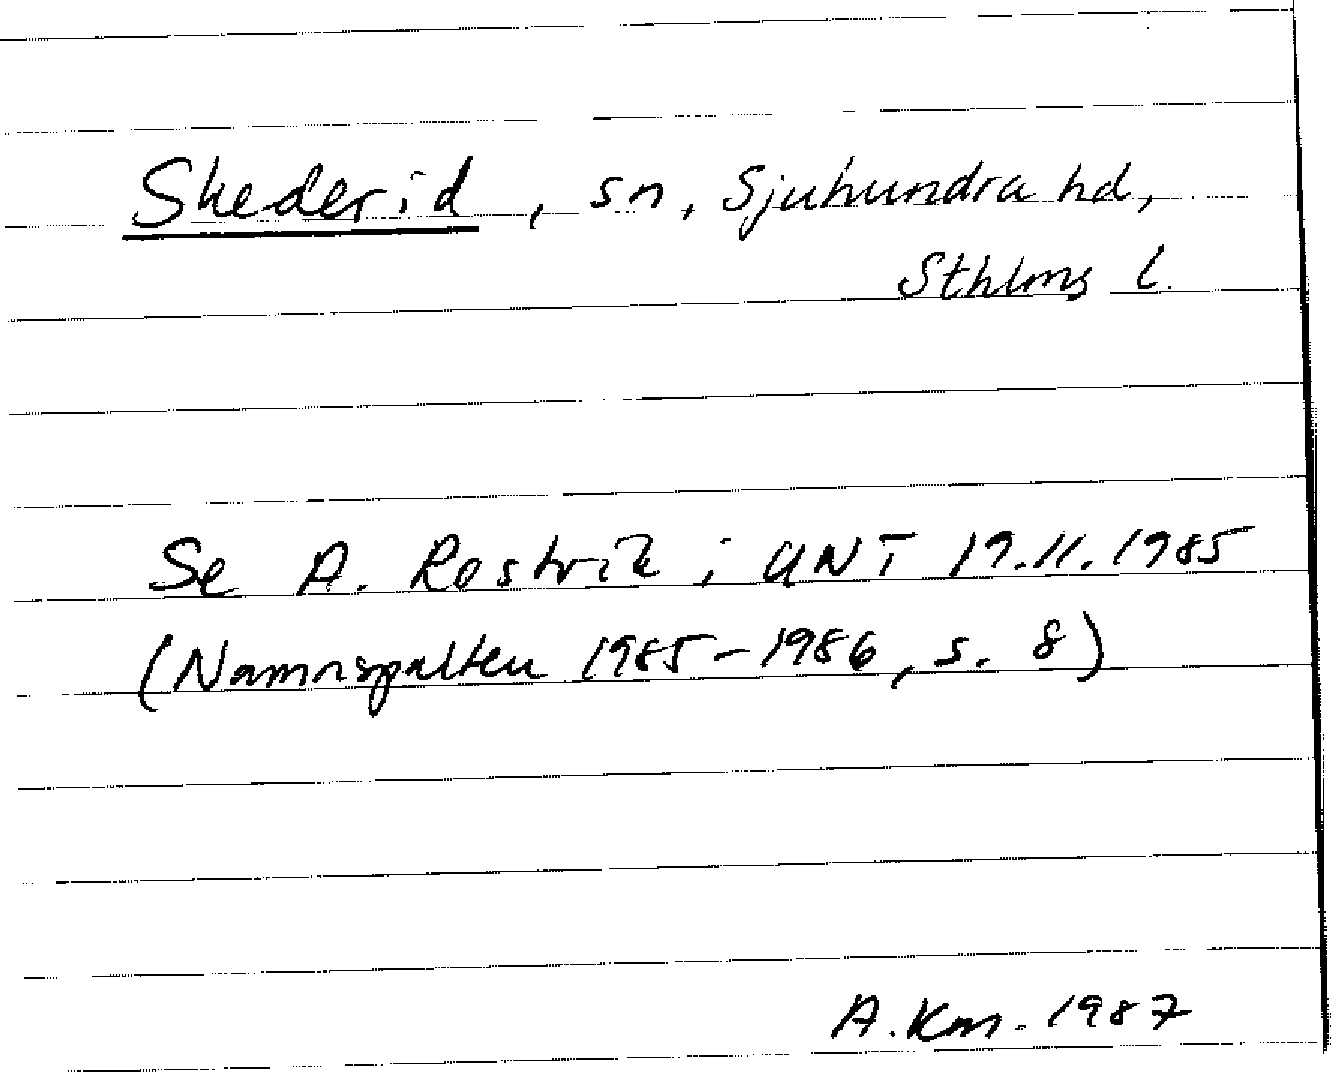 Skederid, sn, Sjuhundra hd,
Sthlms l.
Se A. Rostvik i UNT 19.11.1985
(Namnspalten 1985-1986, s. 8)
A. Km. 1987